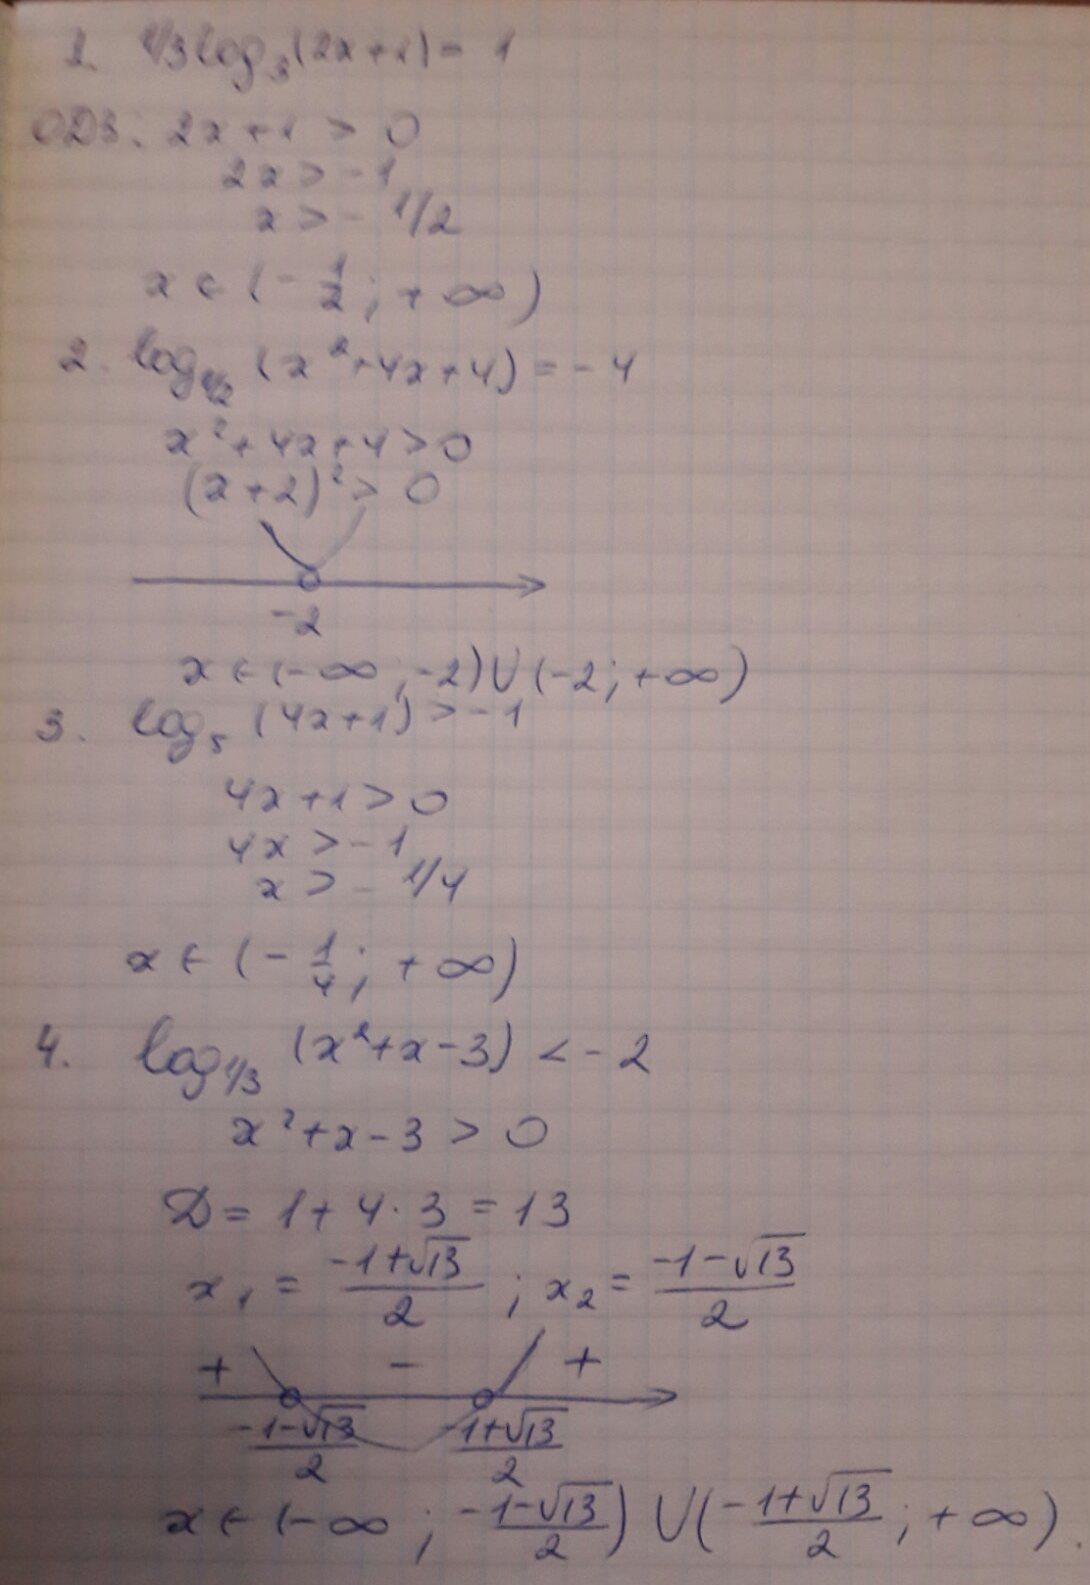 1. 1/3 log₃(2x+1) = 1
ОДЗ: 2x+1 > 0
2x > -1
x > - 1/2
x ∈ (- 1/2 ; + ∞)
2. log₁/₂ (x²+4x+4) = - 4
x²+4x+4 > 0
(x+2)² > 0
-2
x ∈ (-∞ ; -2) ∪ (-2 ; +∞)
3. log₅ (4x+1) > -1
4x+1 > 0
4x > -1
x > - 1/4
x ∈ (- 1/4 ; + ∞)
4. log₁/₃ (x²+x-3) < -2
x²+x-3 > 0
D = 1+4·3 = 13
x₁ = (-1+√13)/2 ; x₂ = (-1-√13)/2
+ - +
(-1-√13)/2 (-1+√13)/2
x ∈ (-∞ ; (-1-√13)/2) ∪ ((-1+√13)/2 ; +∞).